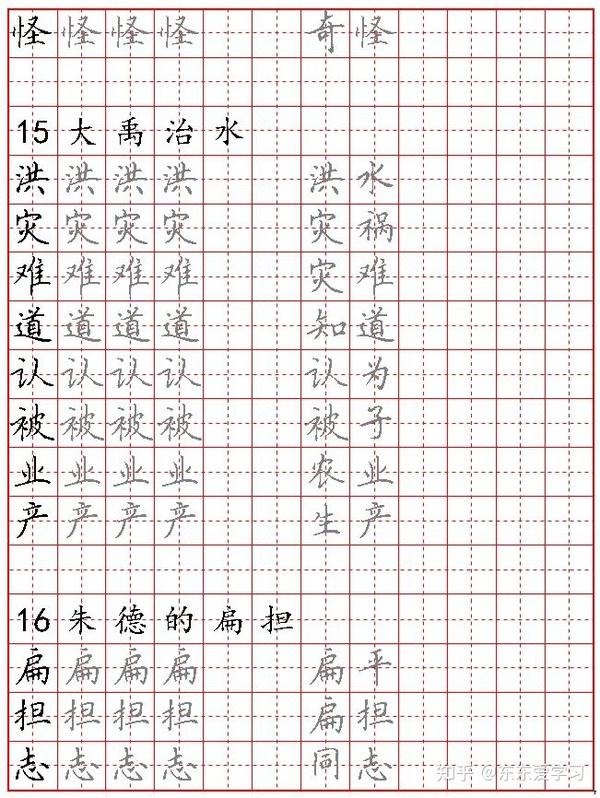 怪怪怪怪 奇怪
15大禹治水
洪洪洪洪 洪水
灾灾灾灾 灾祸
难难难难 灾难
道道道道 知道
认认认认 认为
被被被被 被子
业业业业 农业
产产产产 生产
16朱德的扁担
扁扁扁扁 扁平
担担担担 扁担
志志志志 同志
知乎 @东东爱学习